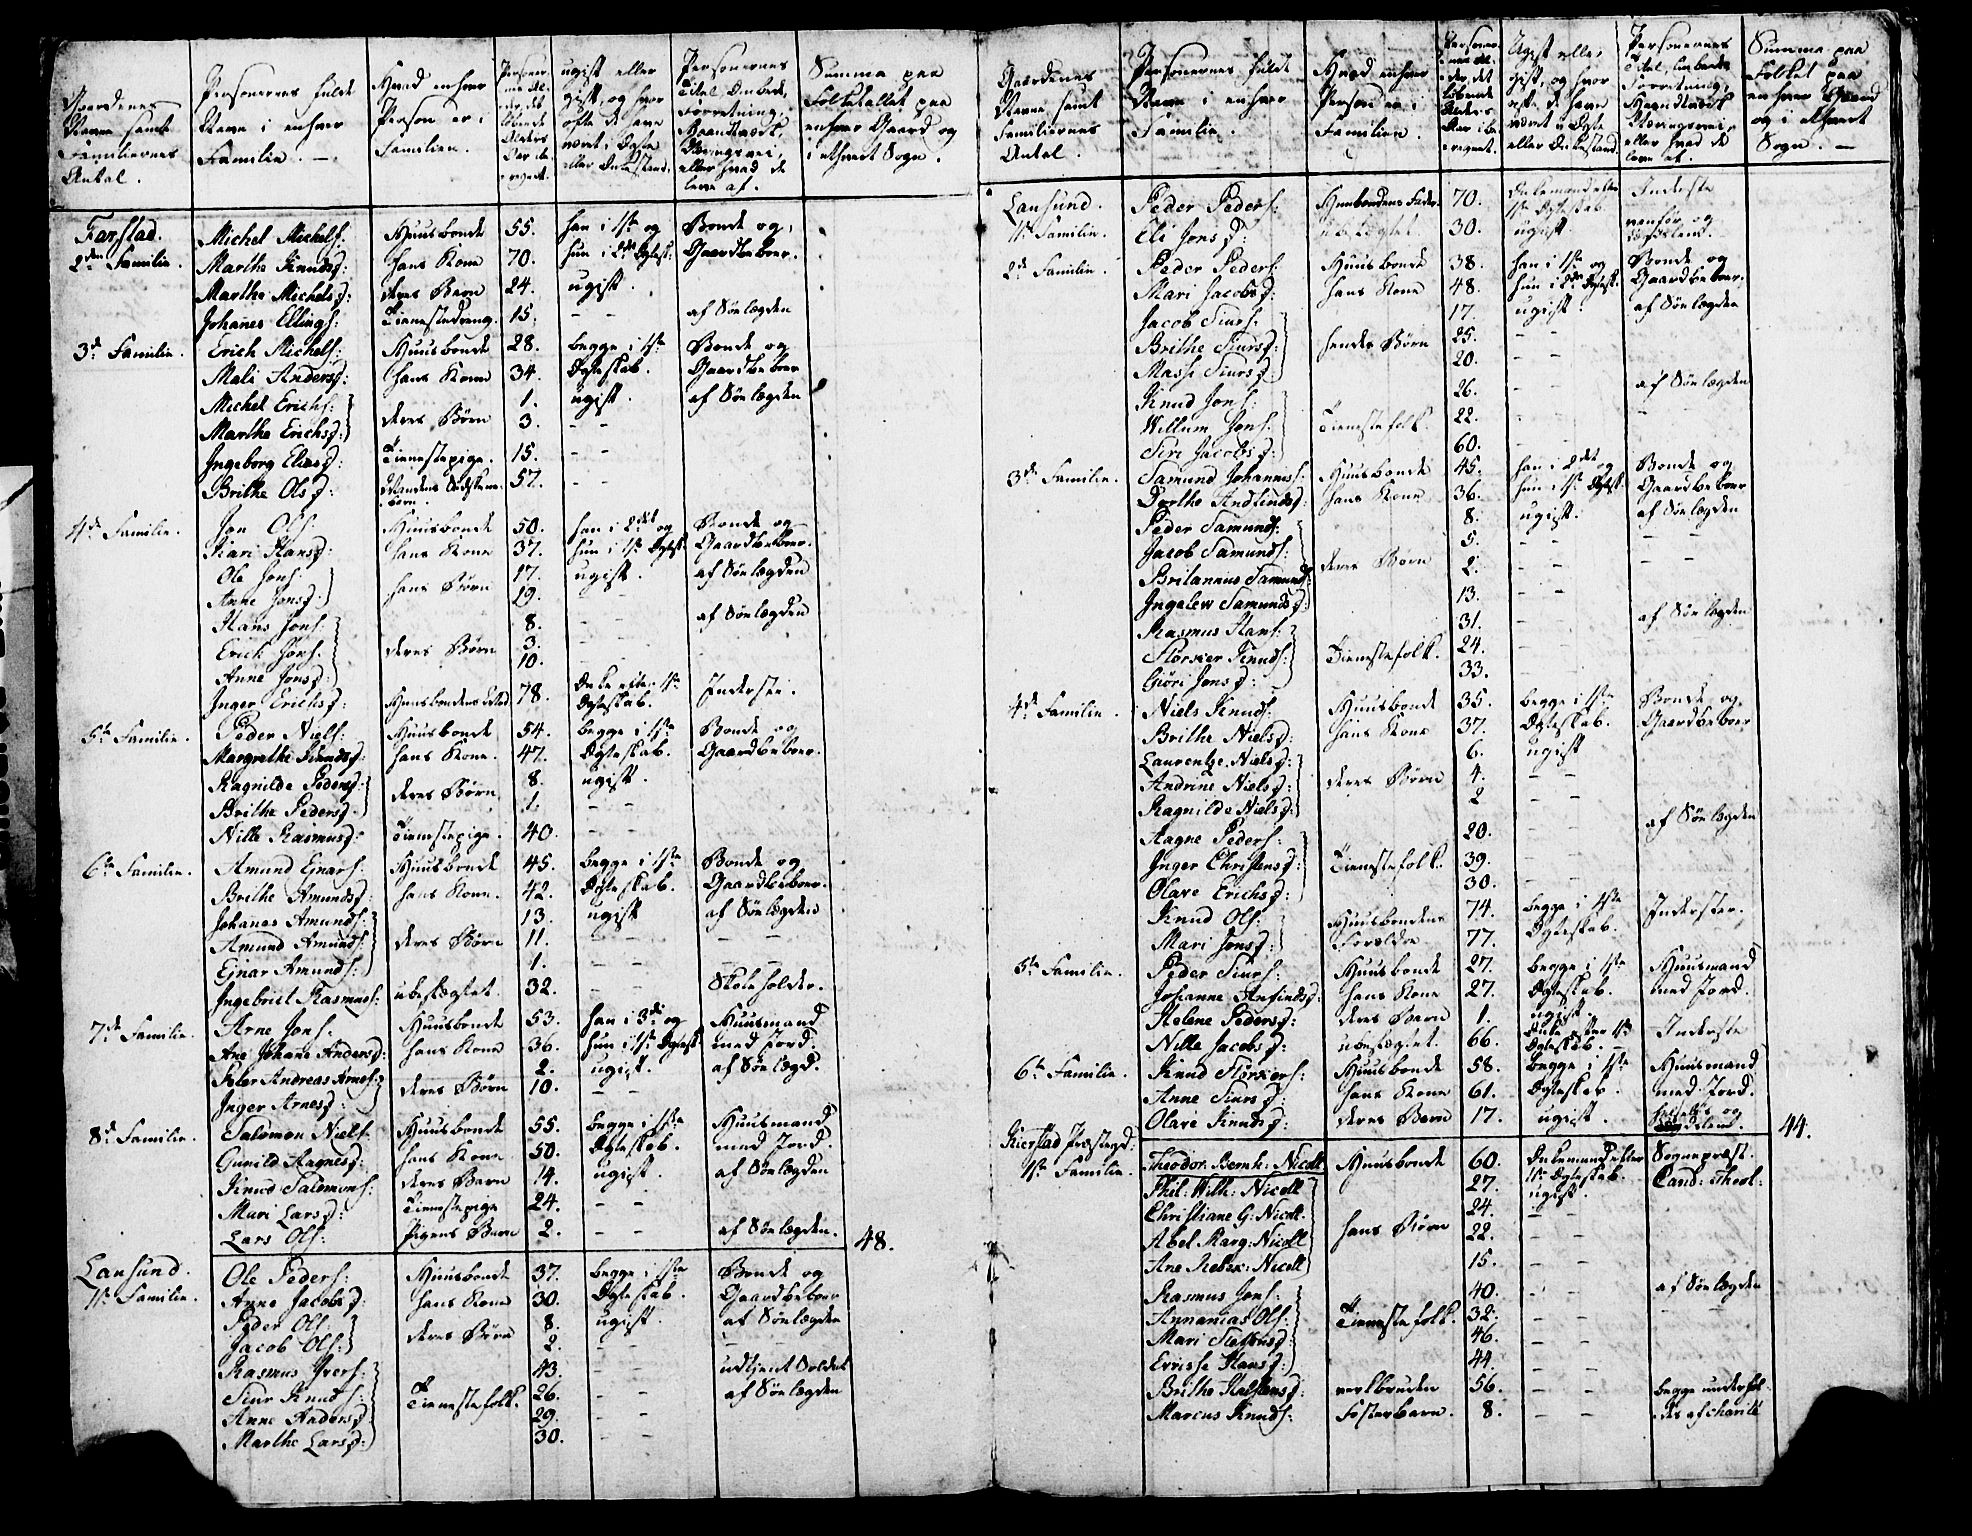 Gaardenes
Navne samt
Familiernes
Antal.
Personernes fulde
Navn i enhver
Familie.
Hvad enhver
Person er i
Familien.
ugift eller
gift, og hvor
ofte de have
været i Ægte
eller Enkestand.
Personernes
Titel, Embede,
Forretning,
Haandværk,
Næringsvei,
eller hvad de
leve af.
Summa paa
Folketallet paa
enhver Gaard og
i ethvert Sogn.
Farstad.
2den Familie. Michel Michels: Huusbonde 55. han i 1ste og Bonde og
Marthe Knuds D: hans Kone 70. hun i 2d Ægtesk: Gaardbeboer.
Marthe Michels D: deres Barn 24. ugift.
Johanes Ellings: Tienestedreng. 15. – – af Søelægden
3de Familie. Erich Michels: Huusbonde 28. begge i 1ste Bonde og
Mali Anders D: hans Kone 34. Ægteskab. Gaardbeboer
Michel Erichs: 1. ugift. af Søelægden
Marthe Erichs D: deres Børn 3. – –
Ingeborg Elias D: Tienestepige. 15. – –
Brithe Ols D: 57. – –
4de Familie. Jon Ols: Huusbonde 50. han i 2det og Bonde og
Kari Hans D: hans Kone 37. hun i 1ste Ægtesk: Gaardbeboer.
Ole Jons: 17. ugift. af Søelægden
Anne Jons D: hans Børn 19. – –
Hans Jons: 8. – – af Søelægden
Erich Jons: deres Børn 3. – –
Anne Jons D: 10.
Inger Erichs D: 78. Enke efter 1ste Ægteskab. Inderste.
5te Familie. Peder Niels: Huusbonde 54. begge i 1ste Bonde og
Margrethe Knuds D: hans Kone. 47. Ægteskab. Gaardbeboer.
Ragnilde Peders D: 8. ugift.
Brithe Peders D: deres Børn 1. – –
Nille Rasmus D: Tienestepige. 40. – –
6te Familie. Amund Ejnars: Huusbonde 45. begge i 1ste Bonde og
Brithe Amunds D: hans Kone. 42. Ægteskab. Gaardbeboer.
Johanes Amunds: 13. ugift af Søelægden
Amund Amunds: deres Børn 11. – – – –
Ejnar Amunds: 1. – –
Ingebrict Rasmus: ubeslægtet. 32. – – Skoleholder.
7de Familie. Arne Jons: Huusbonde 53. han i 3de og Huusmand
Ane Johane Anders D: hans Kone 36. hun i 1ste Ægtesk. med Jord.
Peter Andreas Arnes: 2. ugift. af Søelægd.
Inger Arnes D: deres Børn 10. – –
8de Familie. Salomon Niels: Huusbonde 55. begge i 1ste Huusmand
Gunild Aagnes D: hans Kone 50. Ægteskab. med Jord.
Knud Salomons: deres Barn 14. ugift. af Søelægden
Mari Lars D: Tienestepige 24. – –
Lars Ols: Pigens Barn 2. – – af Søelægden. 48.
Lansund.
1ste Familie. Ole Peders: Huusbonde 37. begge i 1ste Bonde og
Anne Jacobs D: hans Kone 30. Ægteskab. Gaardbeboer
Peder Ols: 8. ugift. af Søelægden
Jacob Ols: deres Børn 2. – –
Rasmus Ivers: 43. – – udtjent Soldat
Siur Knuds: Tienestefolk. 26. – – af Søelægden
Anne Anders D: 29. – –
Marthe Lars D: 30. – –
Gaardenes
Navne samt
Familiernes
Antal.
Personernes fulde
Navn i enhver
Familie.
Hvad enhver
Person er i
Familien.
Ugift eller
gift, og hvor
ofte de have
været i Ægte
eller Enkestand.
Personernes
Titel, Embede,
Forretning,
Haandværk
Næringsvei,
eller hvad de
leve af.
Summa paa
Folket paa
enhver Gaard
og i ethvert
Sogn. –
Lansund.
1ste Familie. Peder Peders: Huusbondens Fader. 70. Enkemand efter 1ste Ægteskab Inderste
Eli Jons D: ubeslægtet. 30. ugift.
2de Familie. Peder Peders: Huusbonde 38. han i 1ste og Bonde og
Mari Jacobs D: hans Kone 48. hun i 2den Ægtesk. Gaardbeboer.
Jacob Siurs: 17. ugift. af Søelægden
Brithe Siurs D: hendes Børn 25. – –
Masse Siurs D: 20. – –
Knud Jons: 26. – – af Søelægden
Willum Jons: Tienestefolk. 22. – – – –
Siri Jacobs D: 60. – –
3de Familie. Samund Johannes: Huusbonde 45. han i 2det og Bonde og
Dorthe Andfinds D: hans Kone 36. hun i 1ste Ægtesk. Gaardbeboer
Peder Samunds: 8. ugift. af Søelægden
Jacob Samunds: 5. – – – –
Britannus Samunds: deres Børn 2. – – – –
Ingelew Samunds D: 13. – –
Rasmus Hans: 31. – – af Søelægden
Storcier Knuds: Tienestefolk. 24. – –
Giøri Jons D: 33. – –
4de Familie. Niels Knuds: Huusbonde 35. begge i 1ste Bonde og
Brithe Niels D: hans Kone 37. Ægteskab. Gaardbeboer
Laurentze Niels D: 6. ugift
Andrine Niels D: deres Børn 4. – –
Ragnilde Niels D: 2 – –
Aagne Peders: 20. – – af Søelægden
Inger Christens D: Tienestefolk. 39. – –
Olave Erichs D: 30. – –
Knud Ols: Huusbondens 74. begge i 1ste Inderster.
Mari Jons D: Forældre 77. Ægteskab.
5te Familie. Peder Siurs: Huusbonde 27. begge i 1ste Huusmand
Johanne Anfinds D: hans Kone 27. Ægteskab. med Jord.
Helene Peders D: deres Barn 1. ugift.
Nille Jacobs D: ubeslægtet. 66. Enke efter 1ste Ægteskab. Inderste
6te Familie. Knud Storciers: Huusbonde 58. begge i 1ste Huusmand
Anne Siurs D: hans Kone 61. Ægteskab. med Jord.
Olave Knuds D: deres Barn 17. ugift. 44.
Kierstad Præstegd.
1ste Familie. Theodor Bernh: Nicoll Huusbonde 60. Enkemand efter 1ste Ægteskab. Sognepræst.
Phil: Wilh: Nicoll 27. ugift. Cand: Theol:
Christiane G: Nicoll. 24. – –
Abel Marg: Nicoll hans Børn 22. – –
Ane Rebek: Nicoll 15. – –
Rasmus Jons: 40. – – af Søelægden
Annanias Ols: Tienestefolk. 32. – – – –
Mari Steffens D: 46. – –
Errisse Hans D: 44. – –
Brithe Halstens D: 56. – – begge underhol-
Marcus Knuds: Fosterbarn. 8. – – des af charité